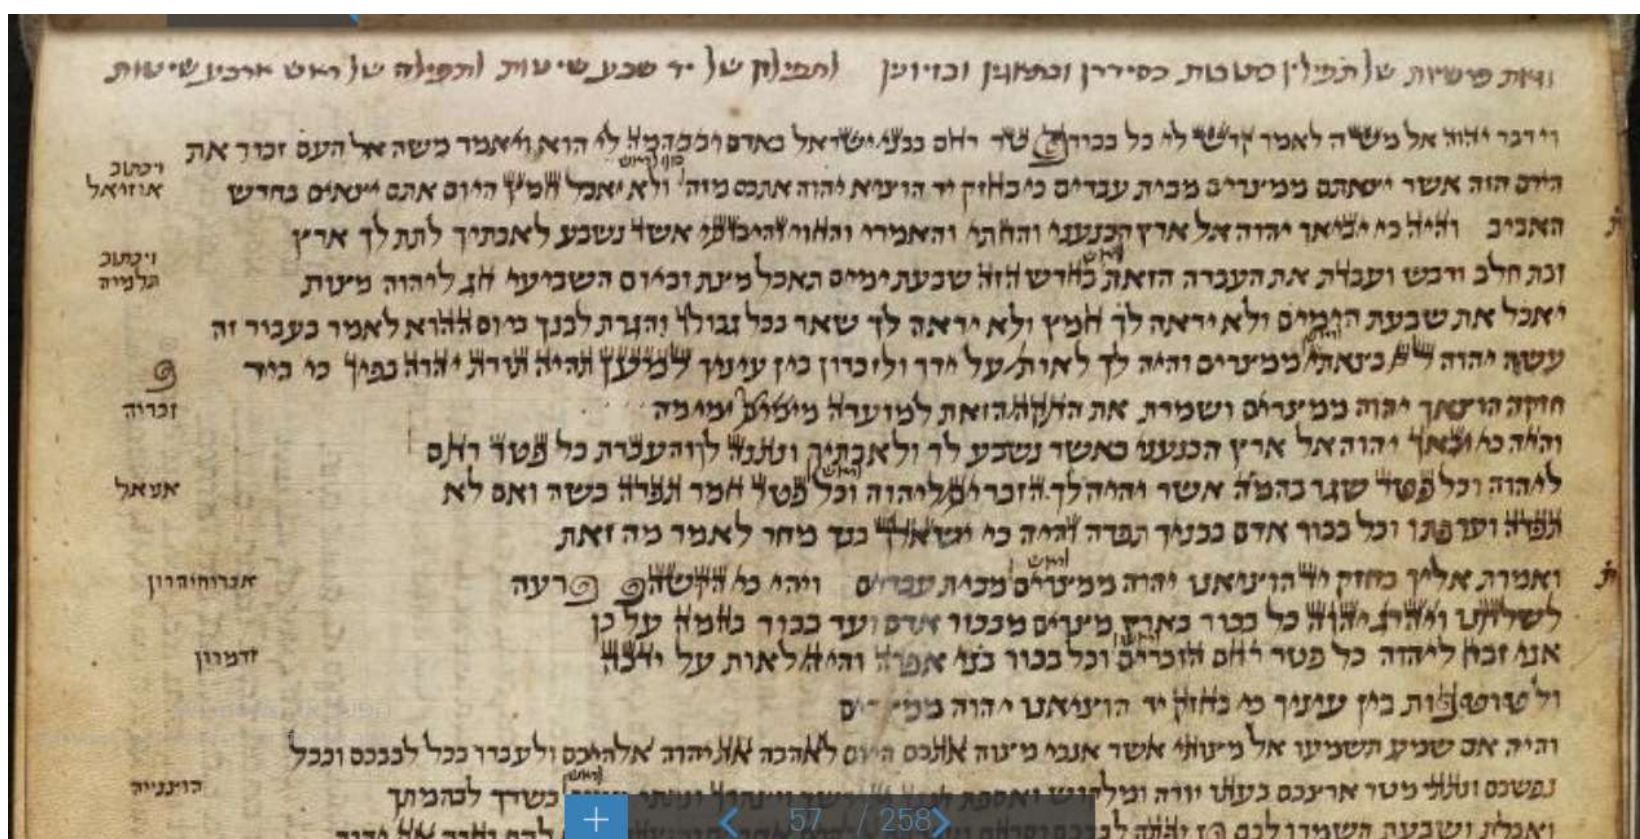 וזאת פרשיות של תפילין כתובות כסידרן ובתאגין ובזיונין לתפילה של יד שבע שיטות לתפילה של ראש ארבע שיטות
וידבר יהוה אל משה לאמר קדש לי כל בכור פטר רחם בבני ישראל באדם ובבהמה לי הוא ויאמר משה אל העם זכור את
ויכתוב
אוזיאל
היום הזה אשר יצאתם ממצרים מבית עבדים כי בחזק יד הוציא יהוה אתכם מזה ולא יאכל חמץ היום אתם יצאים בחדש
האביב והיה כי יביאך יהוה אל ארץ הכנעני והחתי והאמרי והחוי והיבוסי אשר נשבע לאבתיך לתת לך ארץ
ויכתוב
תלמיה
זבת חלב ודבש ועבדת את העבדה הזאת בחדש הזה שבעת ימים תאכל מצת וביום השביעי חג ליהוה מצות
יאכל את שבעת הימים ולא יראה לך חמץ ולא יראה לך שאר בכל גבולך והגדת לבנך ביום ההוא לאמר בעבור זה
עשה יהוה לי בצאתי ממצרים והיה לך לאות על ידך ולזכרון בין עיניך למען תהיה תורת יהוה בפיך כי ביד
זכריה
חזקה הוצאך יהוה ממצרים ושמרת את החקה הזאת למועדה מימים ימימה
והיה כי יבאך יהוה אל ארץ הכנעני כאשר נשבע לך ולאבתיך ונתנה לך והעברת כל פטר רחם
אצאל
ליהוה וכל פטר שגר בהמה אשר יהיה לך הזכרים ליהוה וכל פטר חמר תפדה בשה ואם לא
תפדה וערפתו וכל בכור אדם בבניך תפדה והיה כי ישאלך בנך מחר לאמר מה זאת
ואמרת אליו בחזק יד הוציאנו יהוה ממצרים מבית עבדים ויהי כי הקשה פרעה
לשלחנו ויהרג יהוה כל בכור בארץ מצרים מבכור אדם ועד בכור בהמה על כן
אני זבח ליהוה כל פטר רחם הזכרים וכל בכור בני אפדה והיה לאות על ידכה
ולטוטפות בין עיניך כי בחזק יד הוציאנו יהוה ממצרים
והיה אם שמע תשמעו אל מצותי אשר אנכי מצוה אתכם היום לאהבה את יהוה אלהיכם ולעבדו בכל לבבכם ובכל
נפשכם ונתתי מטר ארצכם בעתו יורה ומלקוש ואספת בשדך לבהמתך
57 / 258